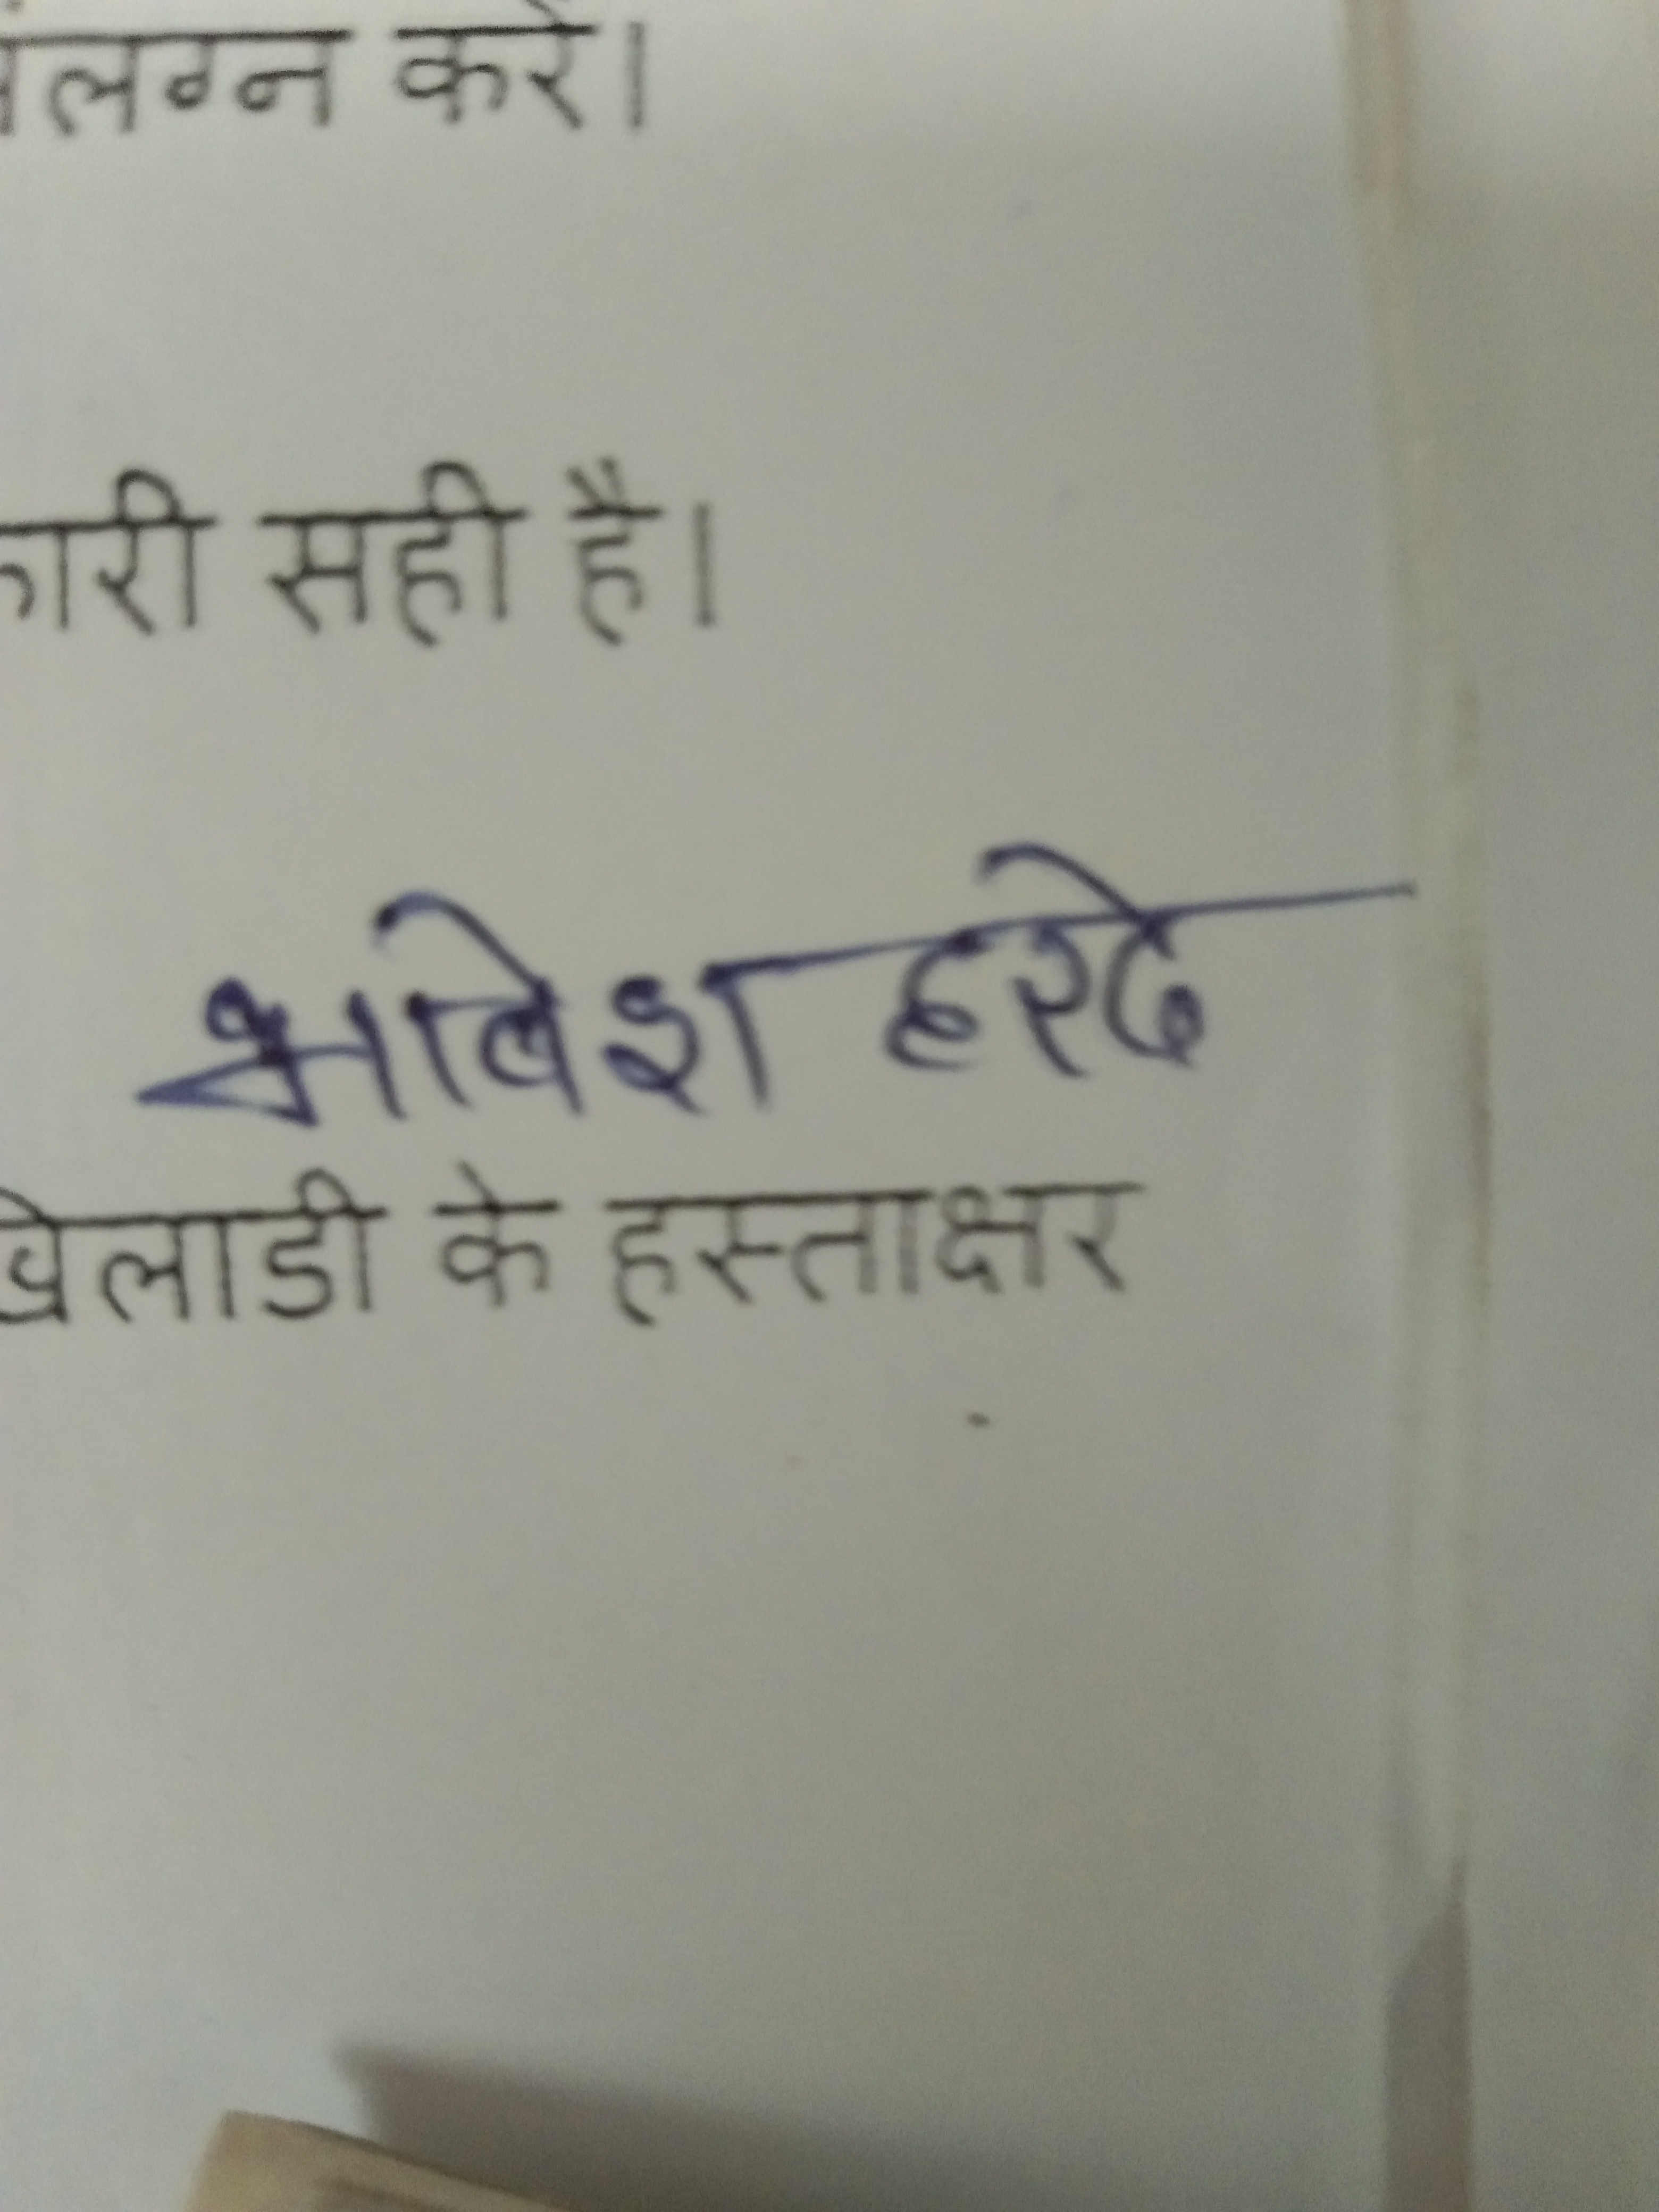 संलग्न करें।
कारी सही है।
भावेश हरदे
खिलाडी के हस्ताक्षर